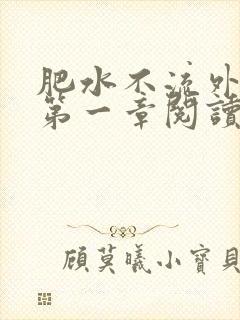 肥水不流外
第一章閱讀
顧莫曦小寶貝